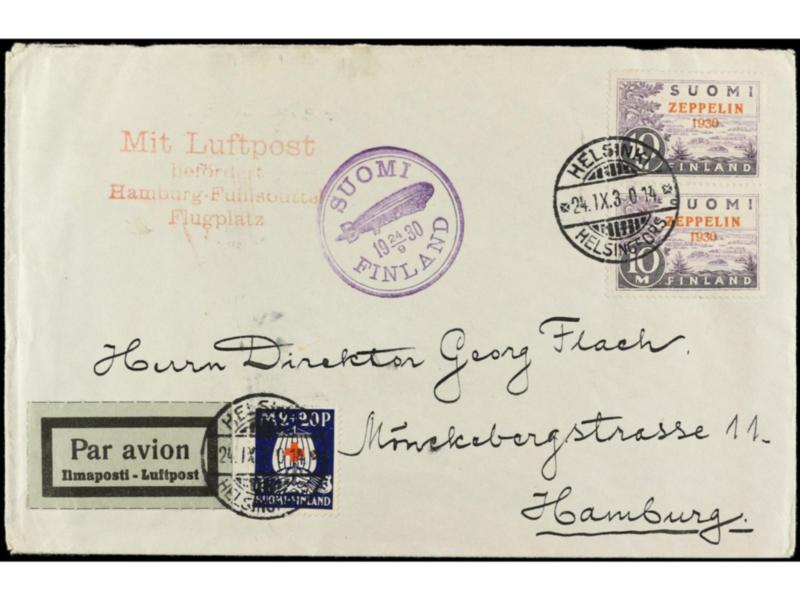 Mit Luftpost
befördert
Hamburg-Fuhlsbüttel
Flugplatz
SUOMI
19 24/9 30
FINLAND
SUOMI
ZEPPELIN
1930
10
M
FINLAND
SUOMI
ZEPPELIN
1930
10
M
FINLAND
HELSINKI
24.IX.3 0.14
HELSINGFORS
Herrn Direktor Georg Flach.
Mönckebergstrasse 11.
Hamburg.
Par avion
Ilmaposti - Luftpost
M2+20P
SUOMI-FINLAND
HELSI
24.IX
HELSING